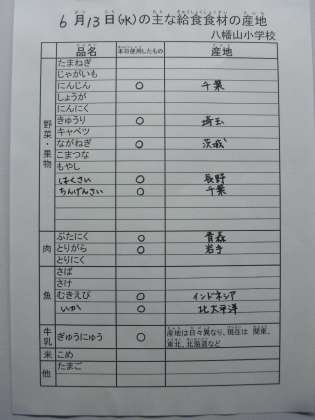 6月13日(水)の主な給食食材の産地
八幡山小学校
品名 本日使用したもの 産地
野菜・果物
たまねぎ
じゃがいも
にんじん ○ 千葉
しょうが
にんにく
きゅうり ○ 埼玉
キャベツ
ながねぎ ○ 茨城
こまつな
もやし
はくさい ○ 長野
ちんげんさい ○ 千葉
肉
ぶたにく ○ 青森
とりがら ○ 岩手
とりにく
魚
さば
さけ
むきえび ○ インドネシア
いか ○ 北太平洋
牛乳 ぎゅうにゅう ○ 産地は日々異なり、現在は 関東、
東北、北海道など
米 こめ
他 たまご